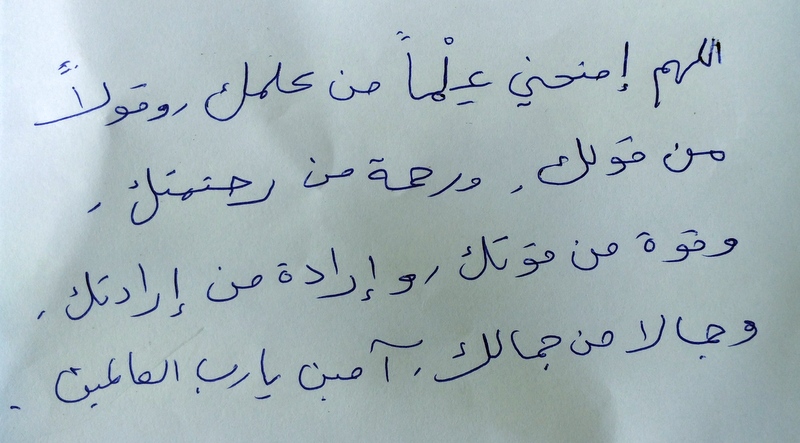 اللهم إمنحني عِلْماً من علمك, وقولاً
من قولك, ورحمة من رحمتك,
وقوة من قوتك, وإرادة من إرادتك,
وجمالا من جمالك, آمين يارب العالمين.